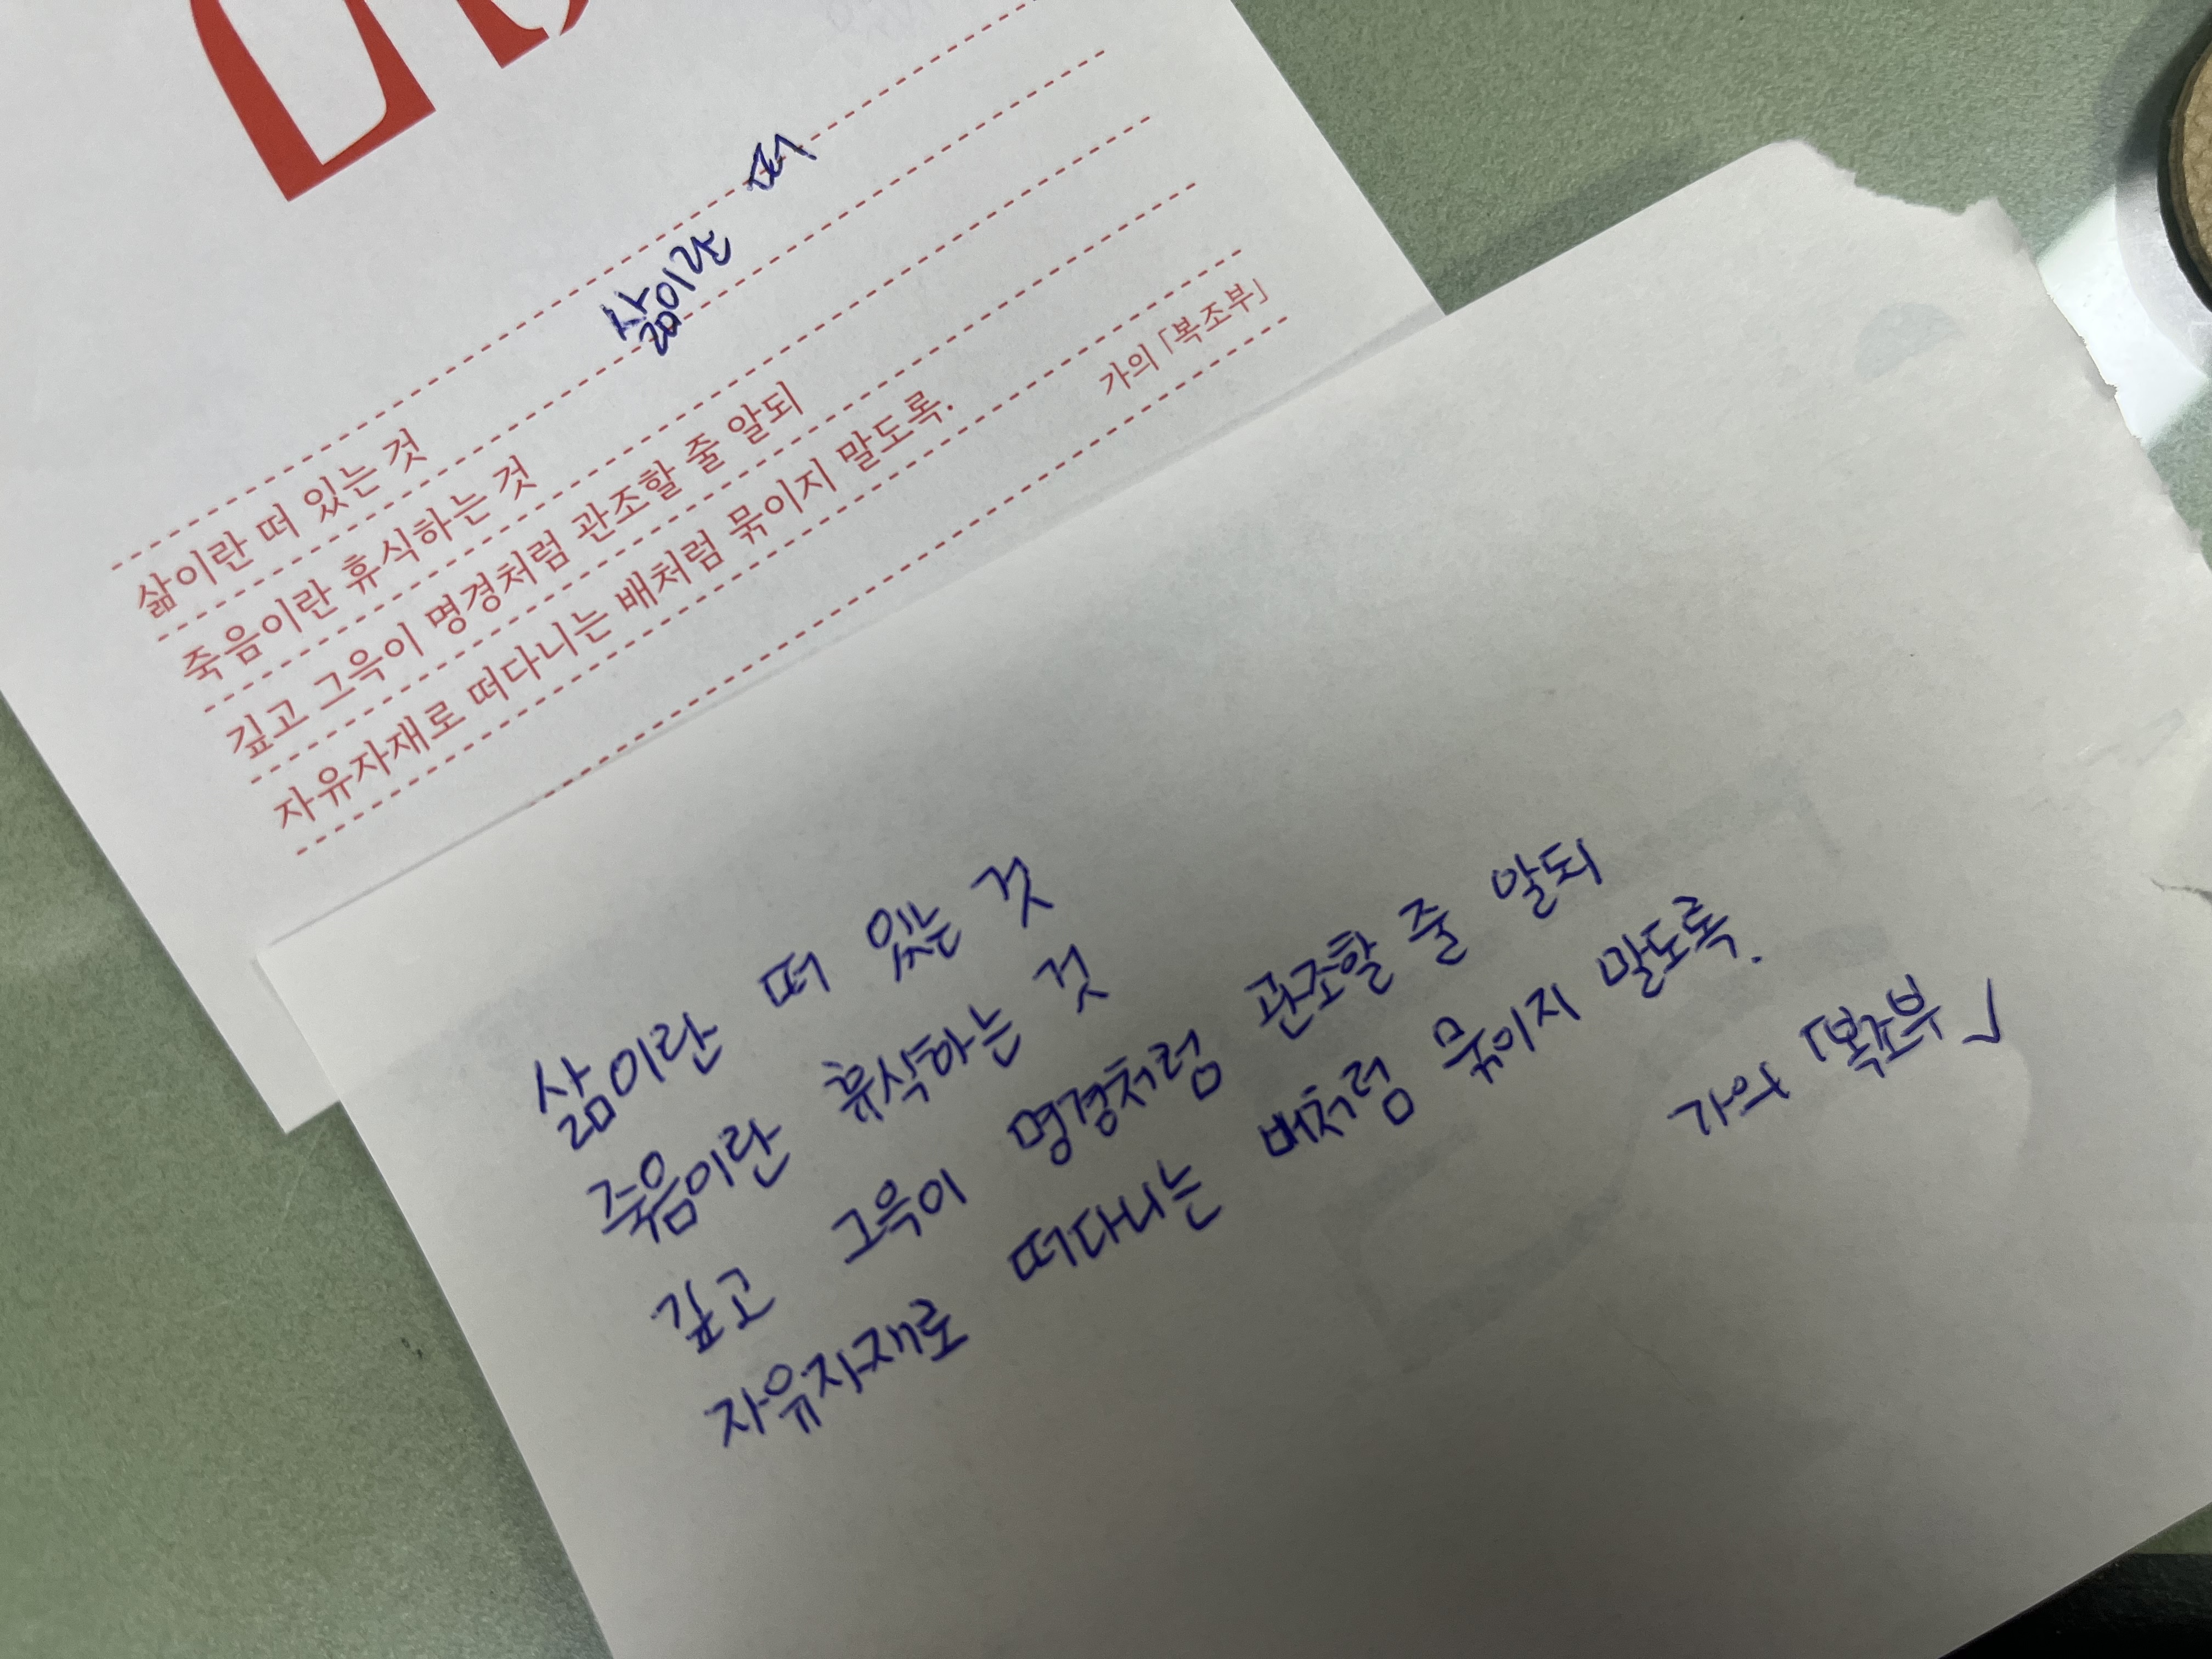 삶이란 떠
삶이란 떠 있는 것
죽음이란 휴식하는 것
깊고 그윽이 명경처럼 관조할 줄 알되
자유자재로 떠다니는 배처럼 묶이지 말도록.
가의 「복조부」
삶이란 떠 있는 것
죽음이란 휴식하는 것
깊고 그윽이 명경처럼 관조할 줄 알되
자유자재로 떠다니는 배처럼 묶이지 말도록.
가의 「복조부」